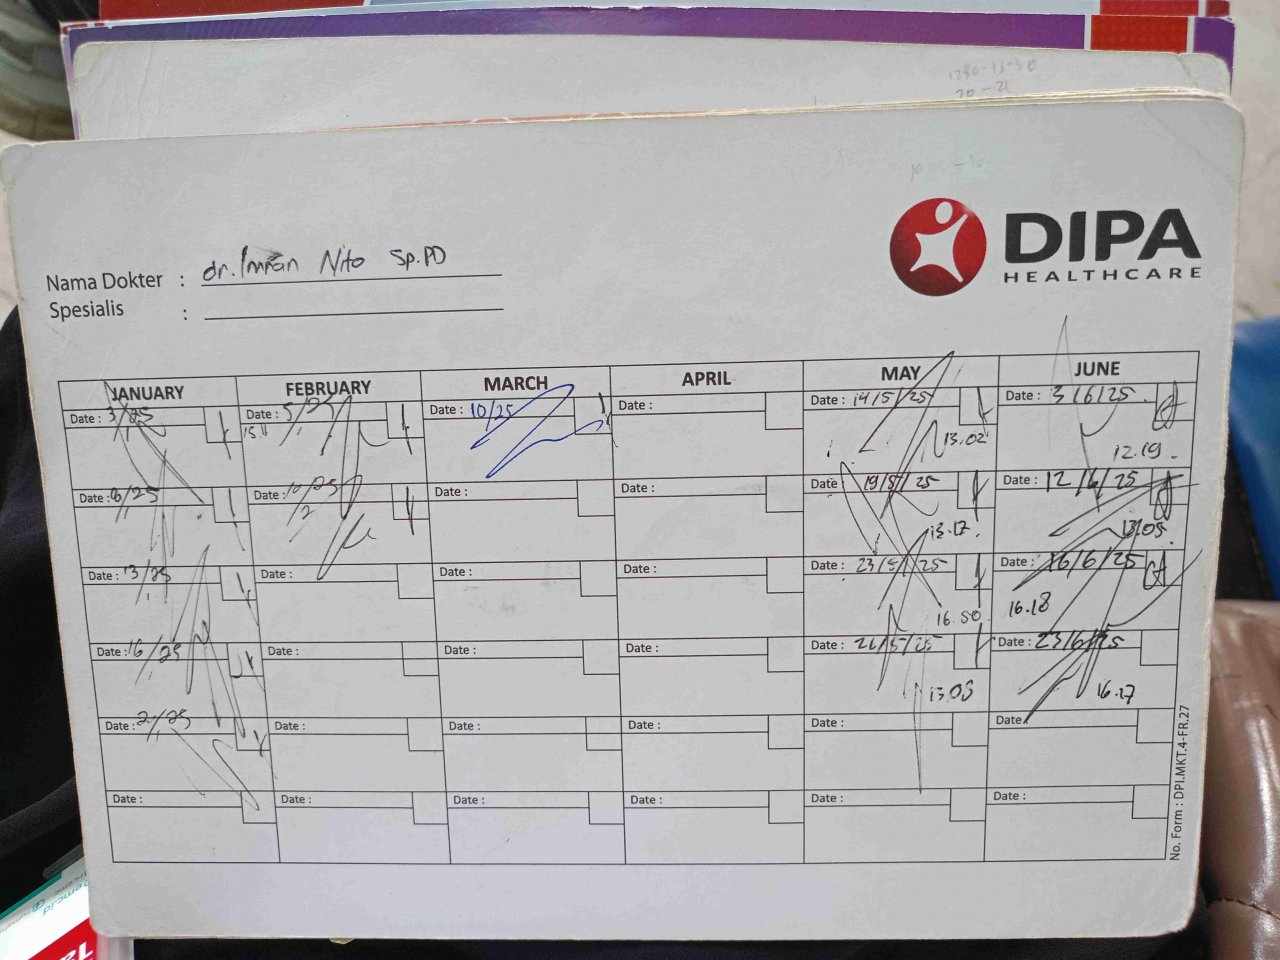 DIPA
HEALTHCARE
Nama Dokter : dr. Imran Nito Sp.PD
Spesialis :
JANUARY FEBRUARY MARCH APRIL MAY JUNE
Date : Date : Date : 10/25 Date : Date : 14/5/25 Date : 3/6/25
13.02 12.19
Date : Date : 10/25 Date : Date : Date : 19/5/25 Date : 12/6/25
13.17 13.05
Date : 13/25 Date : Date : Date : Date : 23/5/25 Date : 16/6/25
16.50 16.18
Date : 16/25 Date : Date : Date : Date : Date : 23/6/25
13.03 16.27
Date : Date : Date : Date : Date : Date :
Date : Date : Date : Date : Date : Date :
No. Form : DPI.MKT.4-FR.27